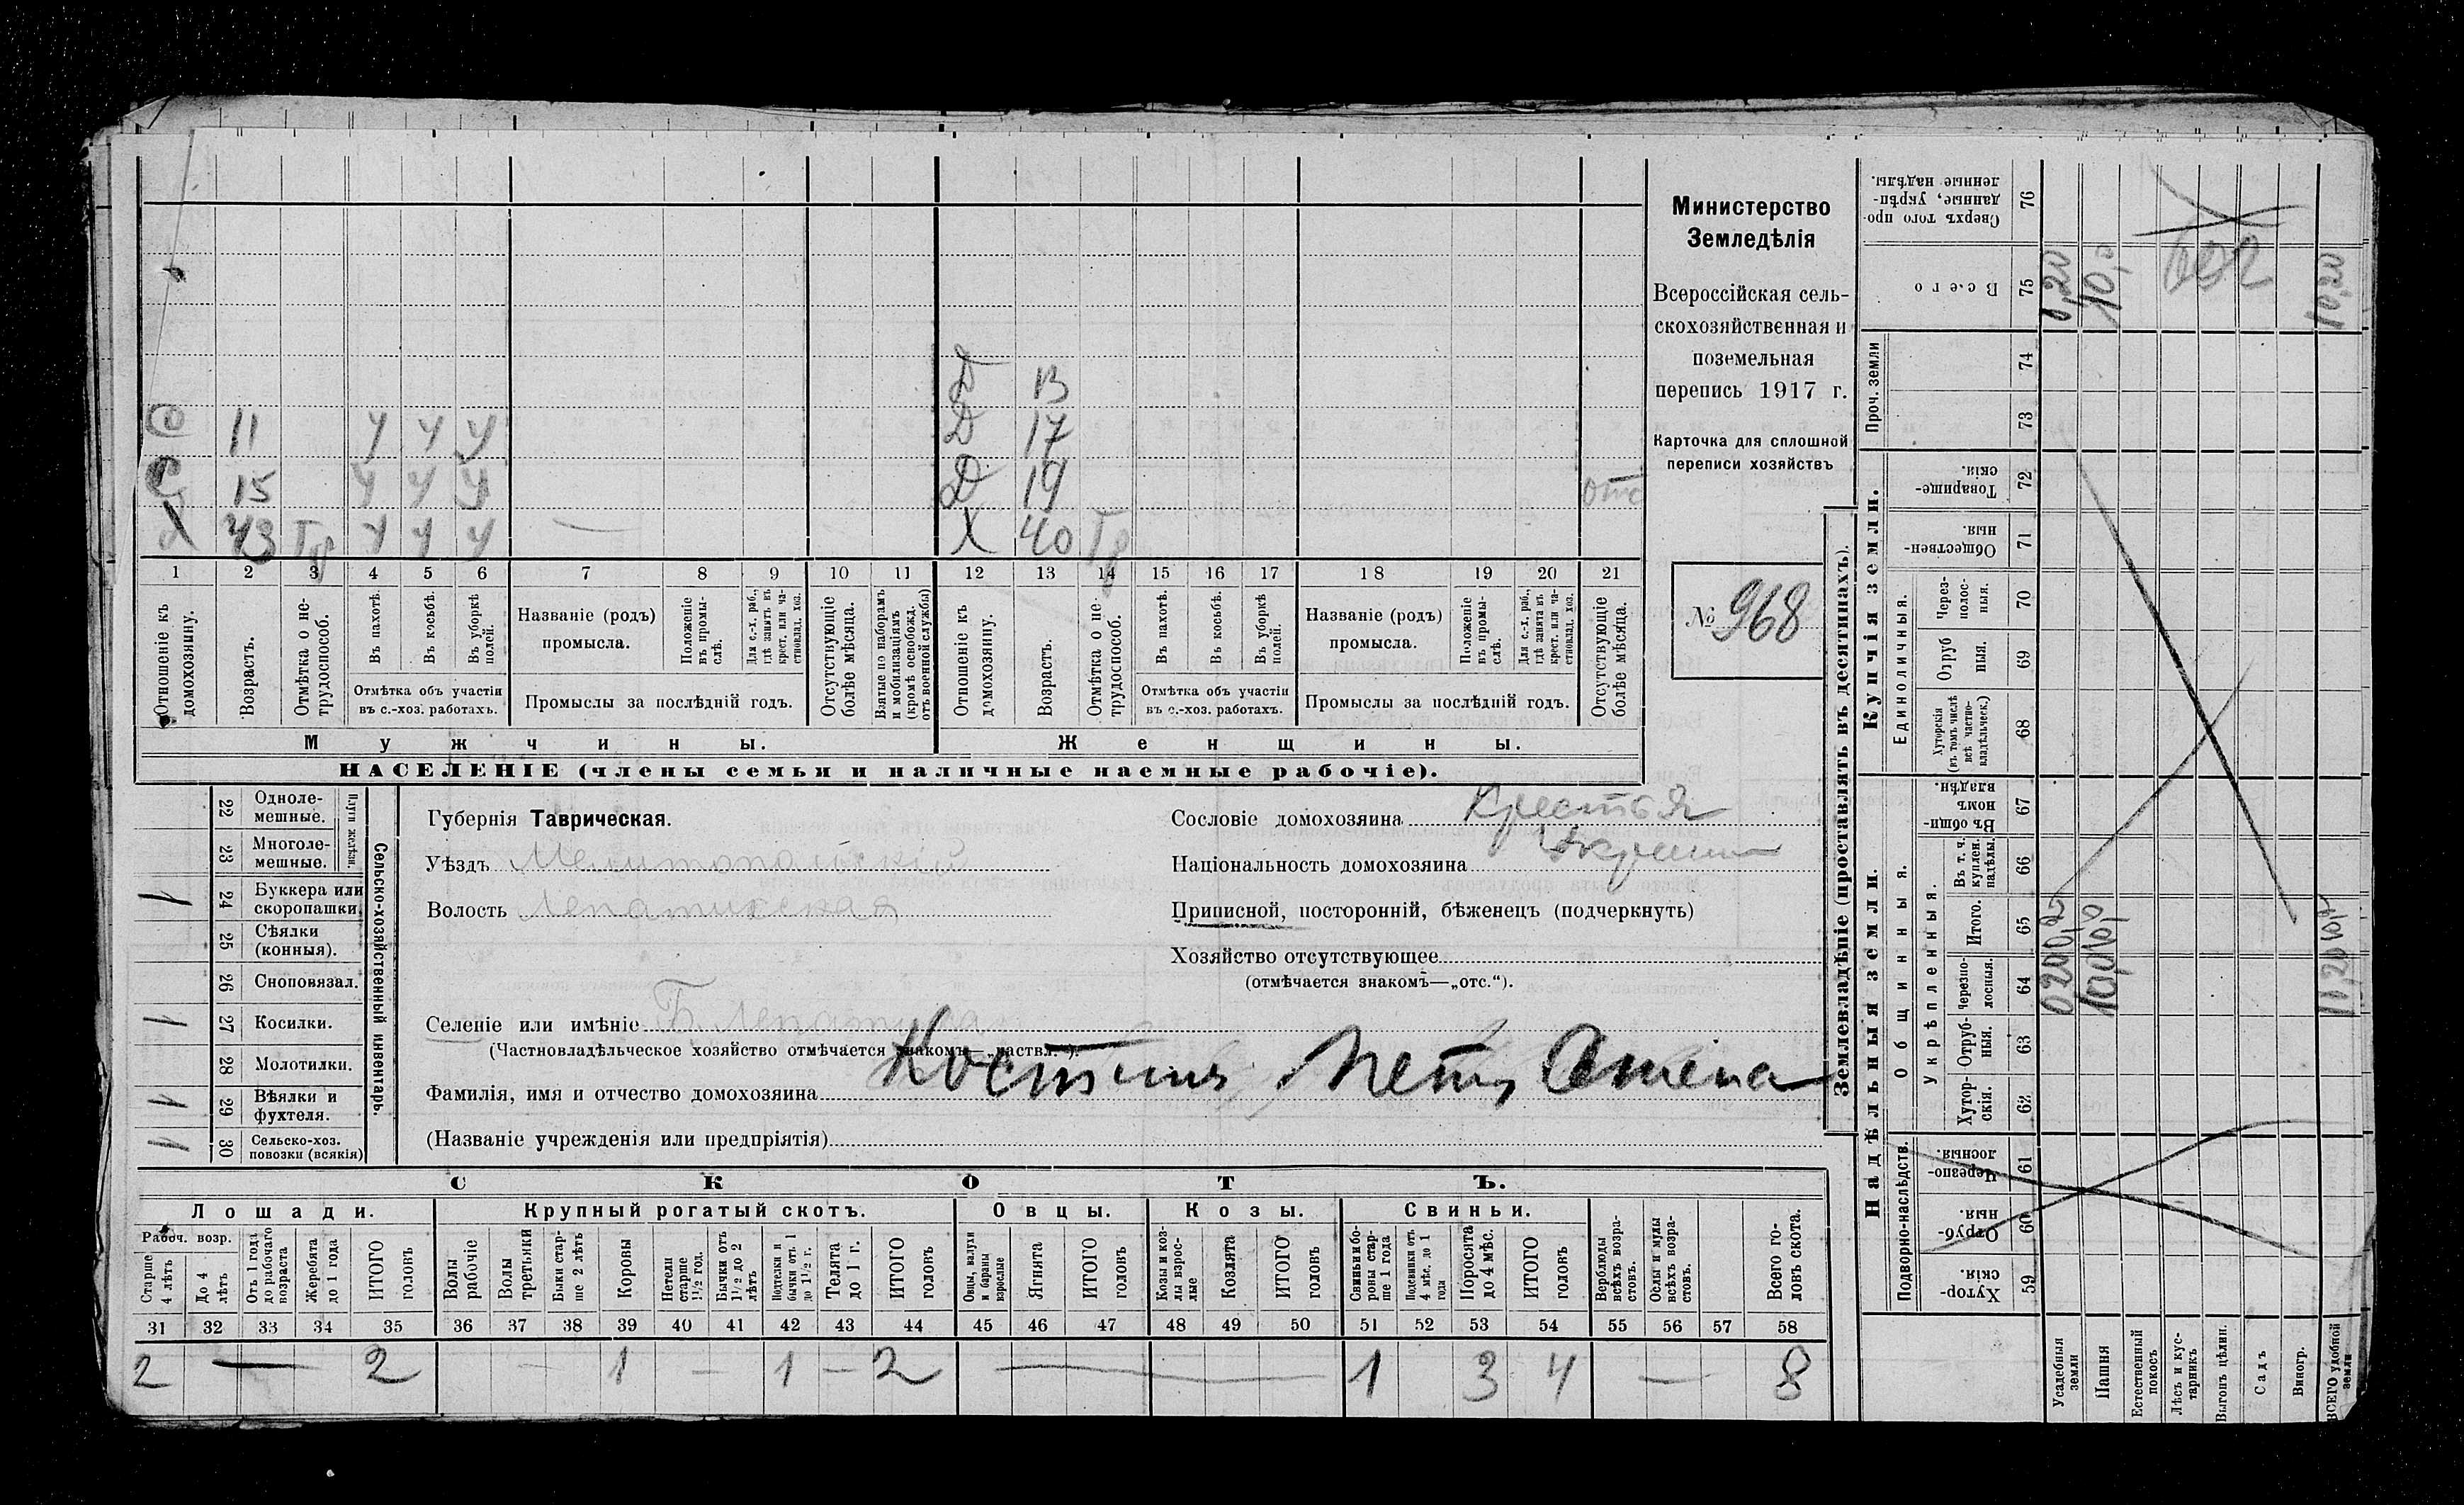 Министерство
Земледѣлія
Всероссійская сель-
скохозяйственная и
поземельная
перепись 1917 г.
Карточка для сплошной
переписи хозяйствъ
№ 968
Д 13
С 11 У У У Д 17
С 15 У У У Д 19 отс
Х 43 Гр У У У — Х 40 Гр
1 2 3 4 5 6 7 8 9 10 11 12 13 14 15 16 17 18 19 20 21
Отношеніе къ домохозяину.
Возрастъ.
Отмѣтка о не-трудоспособ.
Въ пахотѣ.
Въ косьбѣ.
Въ уборкѣ полей.
Отмѣтка объ участіи
въ с.-хоз. работахъ.
Названіе (родъ)
промысла.
Положеніе въ промы-слѣ.
Для с.-х. раб., гдѣ занятъ въ крест. или ча-стновлад. хоз.
Промыслы за послѣдній годъ.
Отсутствующіе болѣе мѣсяца.
Взятые по наборамъ и мобилизаціямъ (кромѣ освобожд. отъ военной службы)
Отношеніе къ домохозяину.
Возрастъ.
Отмѣтка о не-трудоспособ.
Въ пахотѣ.
Въ косьбѣ.
Въ уборкѣ полей.
Отмѣтка объ участіи
въ с.-хоз. работахъ.
Названіе (родъ)
промысла.
Положеніе въ промы-слѣ.
Для с.-х. раб., гдѣ занята въ крест. или ча-стновлад. хоз.
Промыслы за послѣдній годъ.
Отсутствующіе болѣе мѣсяца.
Мужчины. Женщины.
НАСЕЛЕНІЕ (члены семьи и наличные наемные рабочіе).
Сельско-хозяйственный инвентарь.
Плуги желѣзн.
22 Одноле-мешные.
23 Многоле-мешные.
1 24 Буккера или скоропашки.
25 Сѣялки (конныя).
26 Сноповязал.
1 27 Косилки.
28 Молотилки.
1 1 29 Вѣялки и фухтеля.
1 1 30 Сельско-хоз. повозки (всякія)
Губернія Таврическая.
Уѣздъ Мелитопольскій
Волость Лепатихская
Селеніе или имѣніе Б. Лепатиха
(Частновладѣльческое хозяйство отмѣчается знакомъ—„частвл.“).
Фамилія, имя и отчество домохозяина
(Названіе учрежденія или предпріятія)
Сословіе домохозяина
Національность домохозяина
Приписной, посторонній, бѣженецъ (подчеркнуть)
Хозяйство отсутствующее
(отмѣчается знакомъ—„отс.“).
СКОТЪ.
Лошади. Крупный рогатый скотъ. Овцы. Козы. Свиньи.
Рабоч. возр.
Старше 4 лѣтъ
До 4 лѣтъ
Отъ 1 года до рабочаго возраста
Жеребята до 1 года
ИТОГО головъ
Волы рабочіе
Волы третьяки
Быки стар-ше 2 лѣтъ
Коровы
Нетели старше 1½ год.
Бычки отъ 1½ до 2 лѣтъ
Подтелки и бычки отъ 1 до 1½ г.
Телята до 1 г.
ИТОГО головъ
Овцы, валухи и бараны взрослые
Ягнята
ИТОГО головъ
Козы и коз-лы взрос-лые
Козлята
ИТОГО головъ
Свиньи и бо-ровы стар-ше 1 года
Подсвинки отъ 4 мѣс. до 1 года
Поросята до 4 мѣс.
ИТОГО головъ
Верблюды всѣхъ возра-стовъ.
Ослы и мулы всѣхъ возра-стовъ.
Всего го-ловъ скота.
31 32 33 34 35 36 37 38 39 40 41 42 43 44 45 46 47 48 49 50 51 52 53 54 55 56 57 58
2 — 2 — 1 — 1 — 2 — 1 3 4 — 8
Землевладѣніе (проставлять въ десятинахъ).
Купчія земли.
Надѣльныя земли.
Единоличныя.
Общинныя.
Укрѣпленныя.
Подворно-наслѣдств.
Проч. земли
Сверхъ того про-данные, укрѣп-ленные надѣлы. 76
Всего 75 0,20 10,0 10,20
74
73
Товарище-скія. 72
Обществен-ныя. 71
Через-полос-ныя. 70
Отруб ныя. 69
Хуторскія (въ томъ числѣ всѣ частно-владѣльческ.) 68
Въ общин-номъ владѣн. 67
Въ т. ч. куплен. надѣлы. 66
Итого. 65
Черезпо-лосныя. 64
Отруб-ныя. 63
Хутор-скія. 62
Черезпо-лосныя. 61
Отруб-ныя. 60
Хутор-скія. 59
Усадебныя земли
Пашня
Естественный покосъ
Лѣсъ и кус-тарникъ
Выгонъ цѣлин.
Садъ
Виногр.
ВСЕГО удобной земли